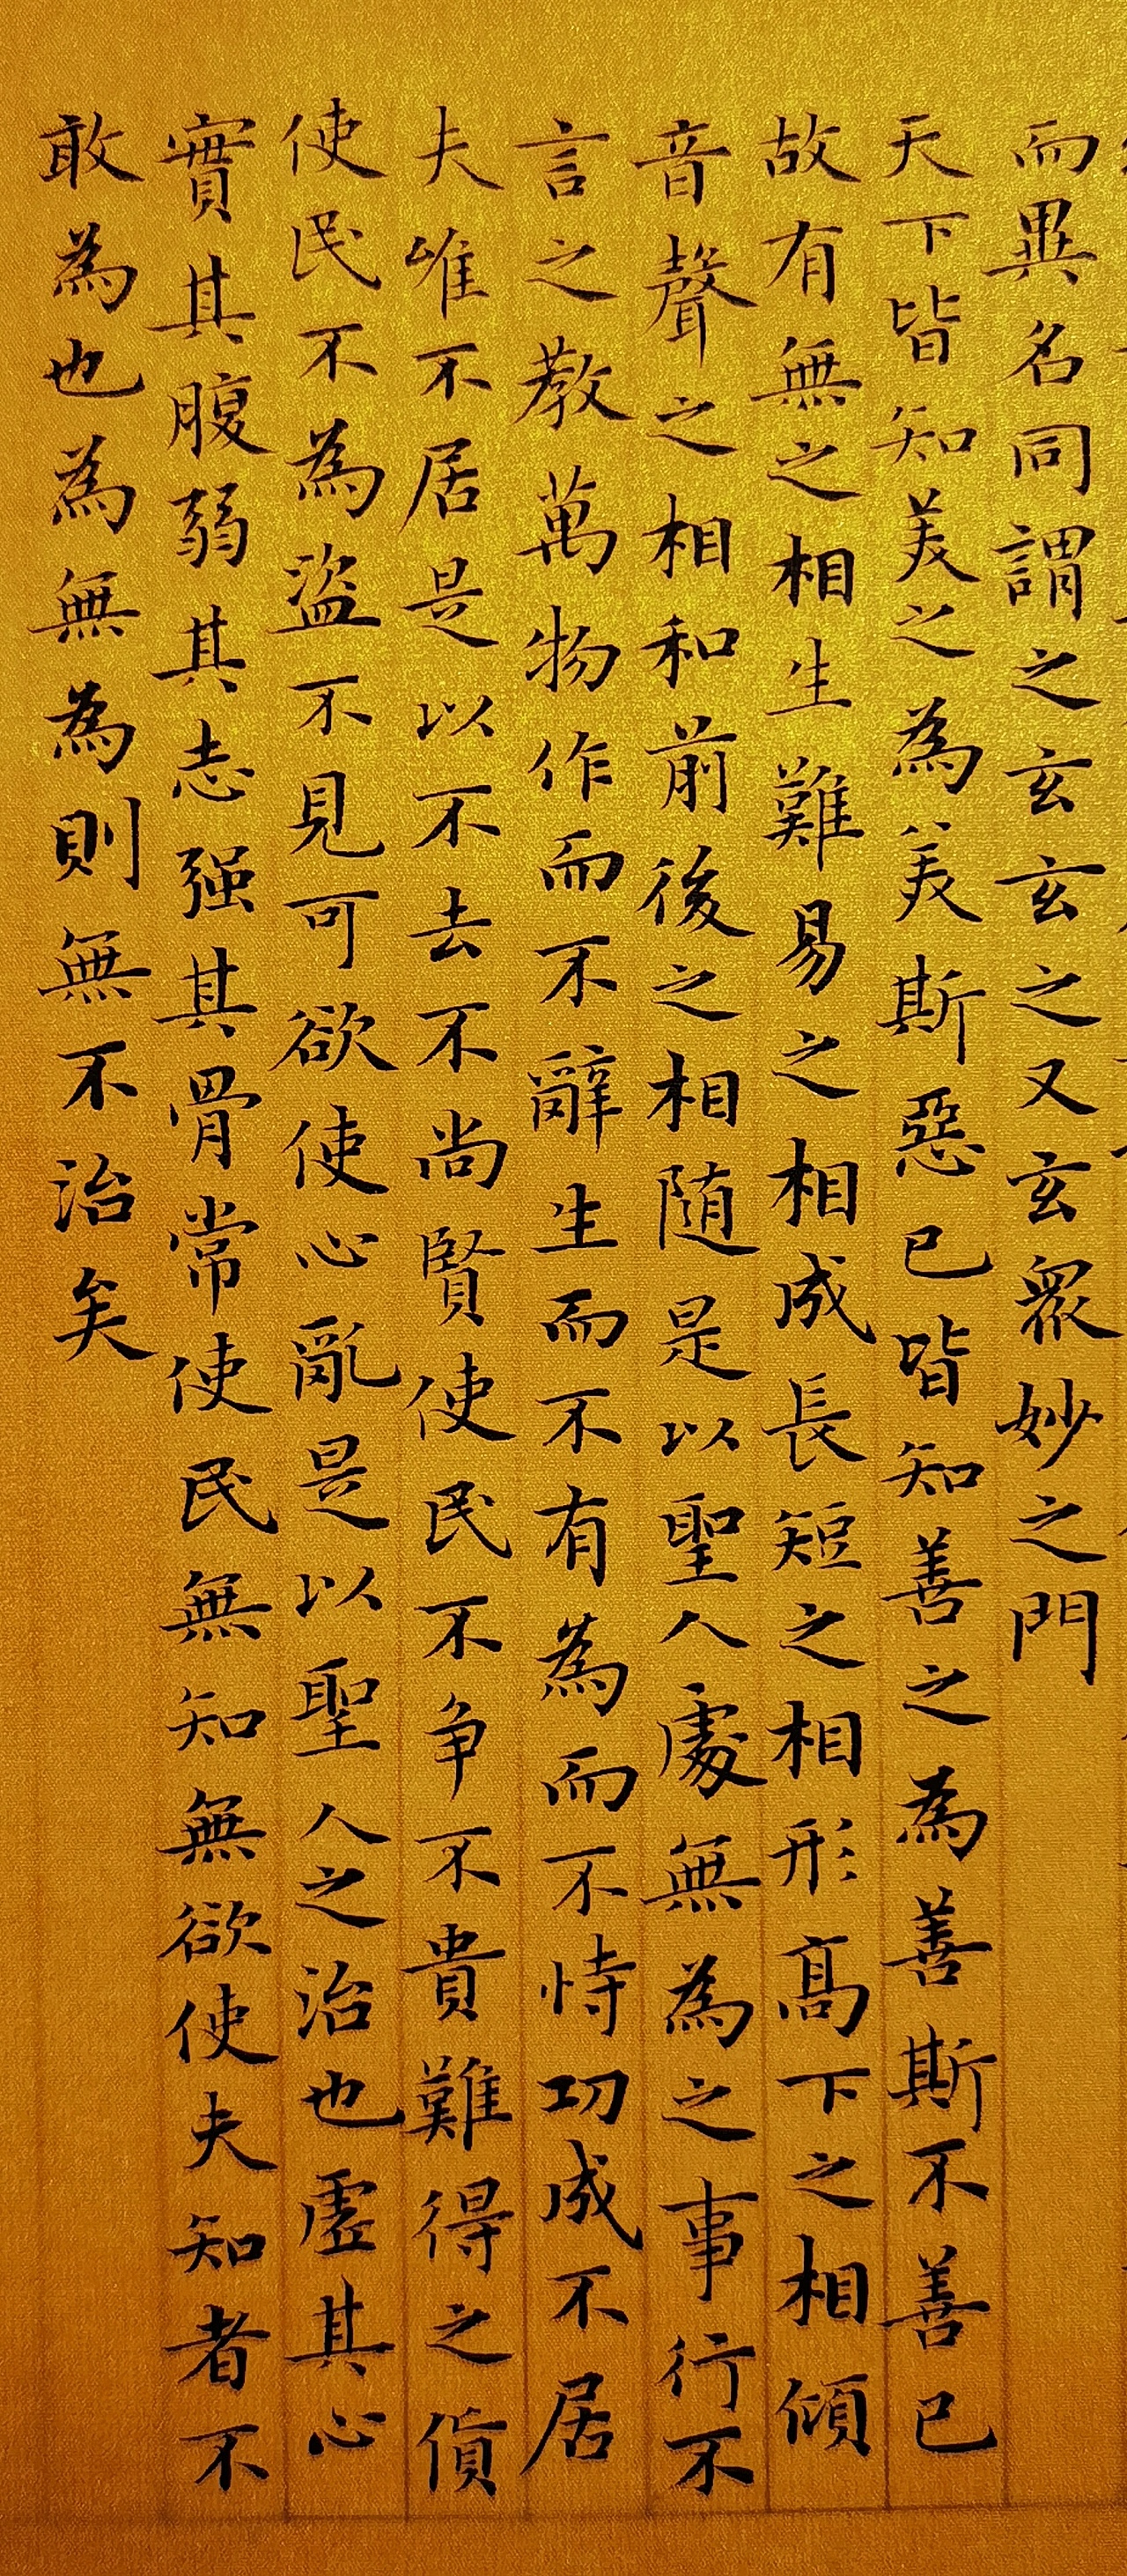 而異名同謂之玄玄之又玄衆妙之門
天下皆知美之為美斯惡已皆知善之為善斯不善已
故有無之相生難易之相成長短之相形高下之相傾
音聲之相和前後之相隨是以聖人處無為之事行不
言之教萬物作而不辭生而不有為而不恃功成不居
夫唯不居是以不去不尚賢使民不争不貴難得之貨
使民不為盜不見可欲使心亂是以聖人之治也虛其心
實其腹弱其志强其骨常使民無知無欲使夫知者不
敢為也為無為則無不治矣